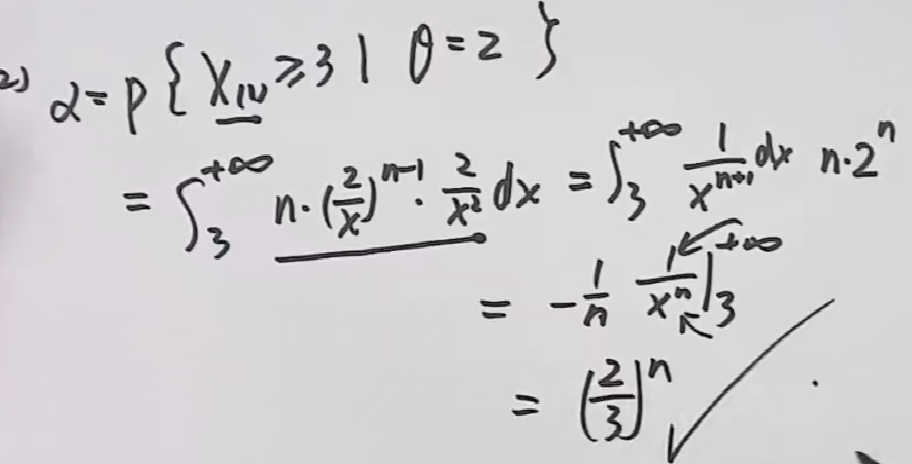 2) α = P{X₍₁₎ ≥ 3 | θ = 2}
= ∫₃^{+∞} n·(2/x)^{n-1}·2/x² dx = ∫₃^{+∞} 1/x^{n+1} dx n·2^n
= -1/n 1/x^n |₃^{+∞}
= (2/3)^n